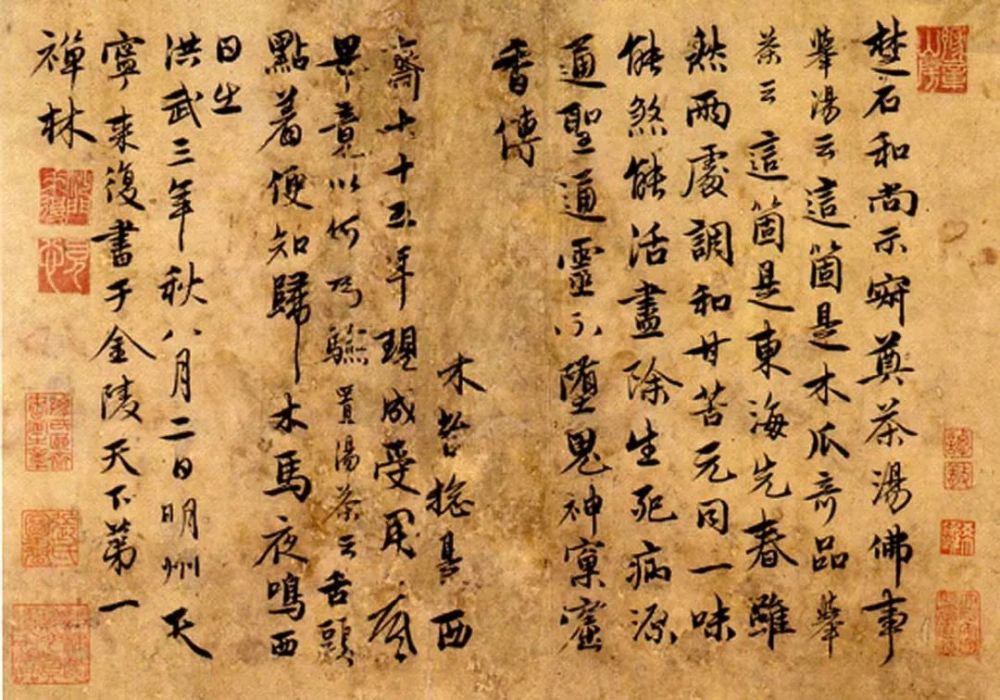 楚石和尚示寂奠茶湯佛事
舉湯云這箇是木瓜奇品舉
茶云這箇是東海先春雖
然兩處調和甘苦元同一味
能煞能活盡除生死病源
通聖通靈不墮鬼神窠窟
香傳
木惣是西
齋七十五年現成受用
畢竟以何為驗置湯茶云舌頭
點着便知歸木馬夜鳴西
日出
洪武三年秋八月二日明州天
寧来復書于金陵天下第一
禪林